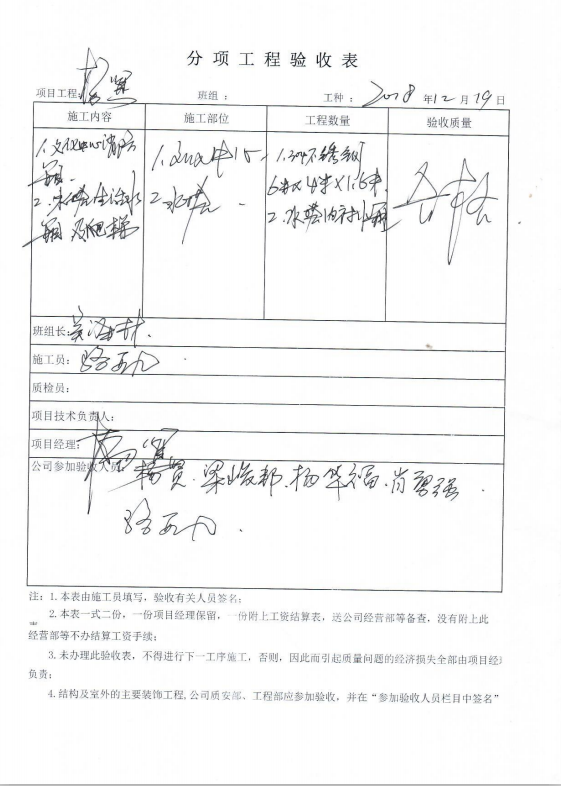 分项工程验收表
项目工程: 杨贤 班组： 工种： 2018年12月19日
施工内容 施工部位 工程数量 验收质量
1. 消防
箱
2. 水塔生活水
箱及爬梯
2. 水塔
1. 304不锈钢
6米×4米×1.6米
2. 水塔内衬
合格
班组长:
施工员: 路五九
质检员:
项目技术负责人:
项目经理: 杨贤
公司参加验收人员: 杨贤.梁峻郡.杨华福.肖勇强.
路五九.
注: 1.本表由施工员填写，验收有关人员签名;
2.本表一式二份，一份项目经理保留，一份附上工资结算表，送公司经营部等备查，没有附上此
经营部等不办结算工资手续;
3.未办理此验收表，不得进行下一工序施工，否则，因此而引起质量问题的经济损失全部由项目经
负责;
4.结构及室外的主要装饰工程,公司质安部、工程部应参加验收，并在“参加验收人员栏目中签名”